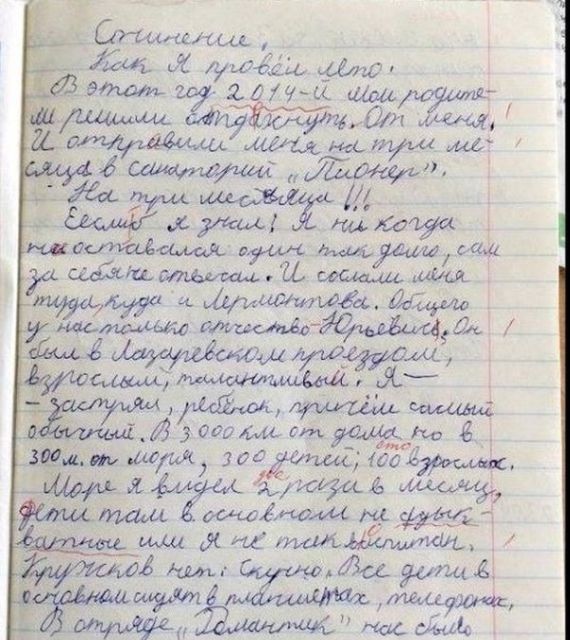 Сочинение,
Как я провёл лето.
В этот год 2014-й мои родите-
ли решили отдахнуть. От меня.
И отправили меня на три ме-
сяца в санаторий "Пионер".
На три месяца!!!
Еслиб я знал! Я ни когда
ни оставался один так долго, сам
за себя не отвечал. И сослали меня
туда, куда и Лермонтова. Общего
у нас только отчество - Юрьевич. Он
был в Лазаревском проездом,
взрослый, талантливый. Я -
- застрял, ребёнок, причём самый
обычный. В 3000 км от дома но в
сто
300 м. от моря, 300 детей, 100 взрослых.
два
Море я видел 2 раза в месяц,
дети там в основном не адык-
ватные или я не так воспитан.
Кружков нет. Скучно. Все дети в
основном сидят в планшетах, телефонах.
В отряде "Романтик" нас было